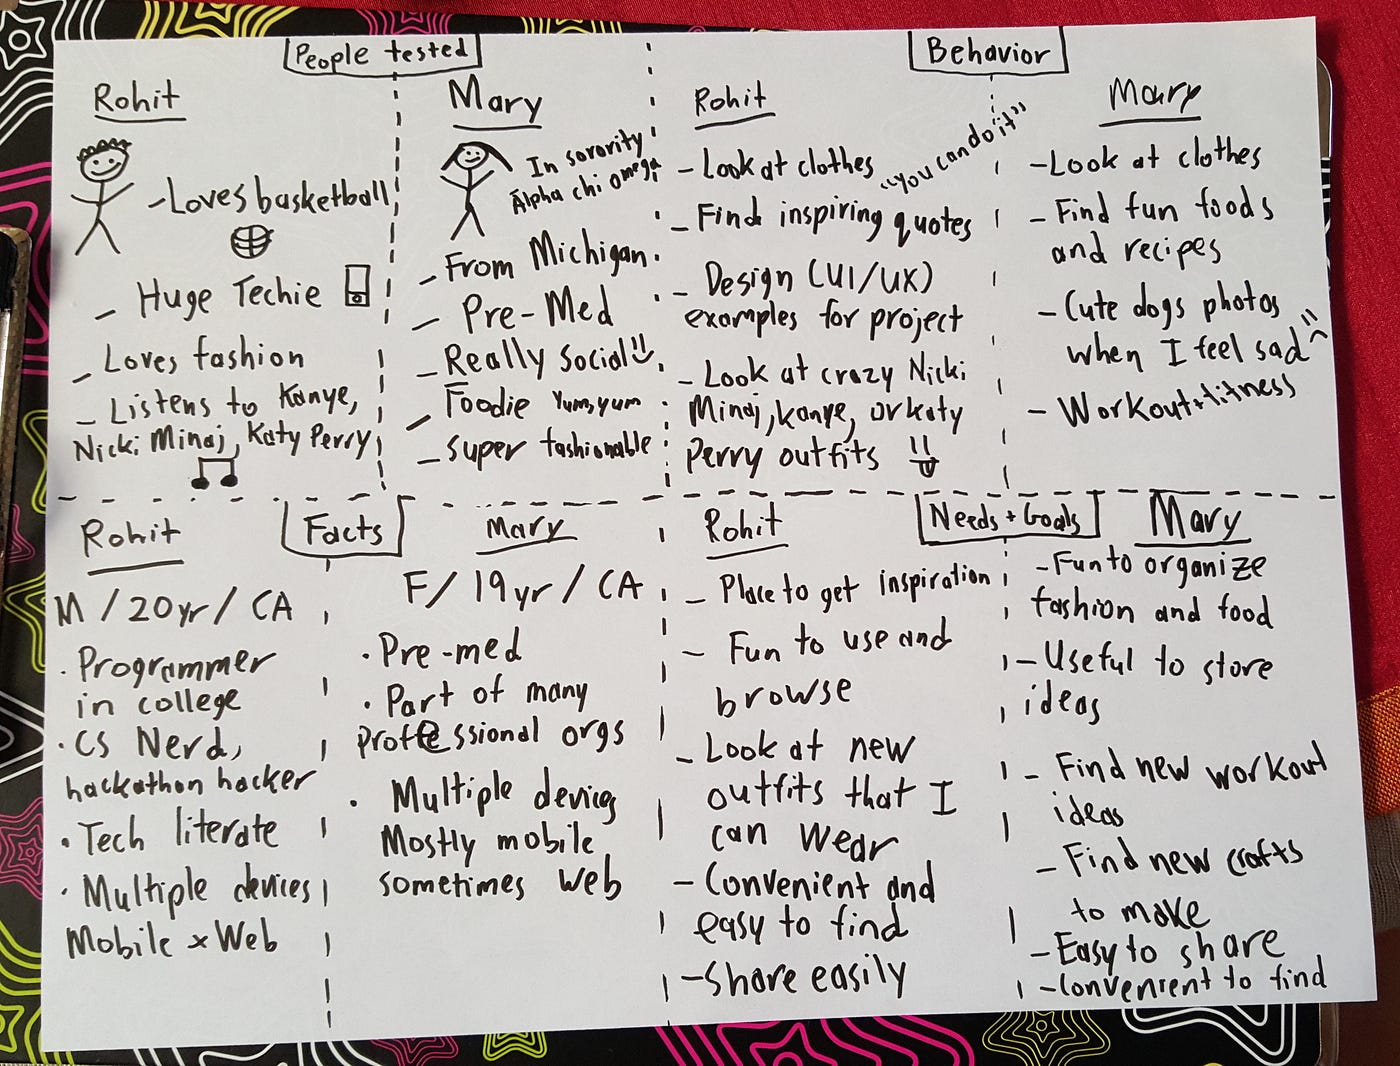 People tested
Rohit
-Loves basketball
- Huge Techie
- Loves fashion
- Listens to Kanye,
Nicki Minaj, Katy Perry
Mary
In sorority
Alpha chi omega
- From Michigan
- Pre-Med
- Really social
- Foodie Yum, yum
- super fashionable
Behavior
Rohit
- Look at clothes
"you can do it"
- Find inspiring quotes
- Design (UI/UX)
examples for project
- Look at crazy Nicki
Minaj, kanye, or katy
Perry outfits
Mary
- Look at clothes
- Find fun foods
and recipes
- Cute dogs photos
when I feel sad
- Workout + fitness
Facts
Rohit
M / 20yr / CA
· Programmer
in college
· CS Nerd,
hackathon hacker
· Tech literate
· Multiple devices
Mobile x Web
Mary
F / 19yr / CA
· Pre-med
· Part of many
proffessional orgs
· Multiple devices
Mostly mobile
sometimes web
Needs + Goals
Rohit
- Place to get inspiration
- Fun to use and
browse
- Look at new
outfits that I
can wear
- Convenient and
easy to find
- Share easily
Mary
- Fun to organize
fashion and food
- Useful to store
ideas
- Find new workout
ideas
- Find new crafts
to make
- Easy to share
- Convenient to find